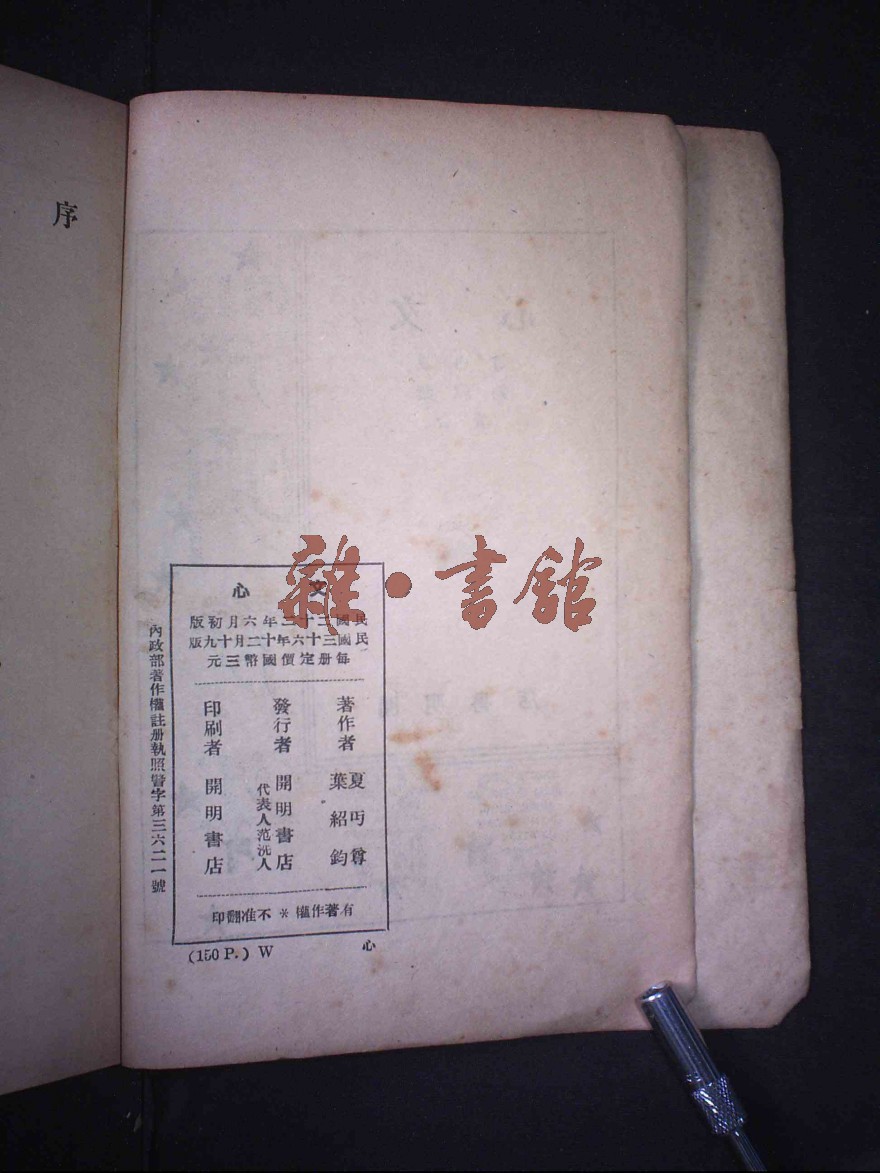 序
文心
民國二十三年六月初版
民國三十六年十二月十九版
每册定價國幣三元
著作者 夏丏尊
葉紹鈞
發行者 開明書店
代表人范洗人
印刷者 開明書店
有著作權＊不准翻印
內政部著作權註册執照警字第三六二一號
(150 P.) W
心
雜·書館